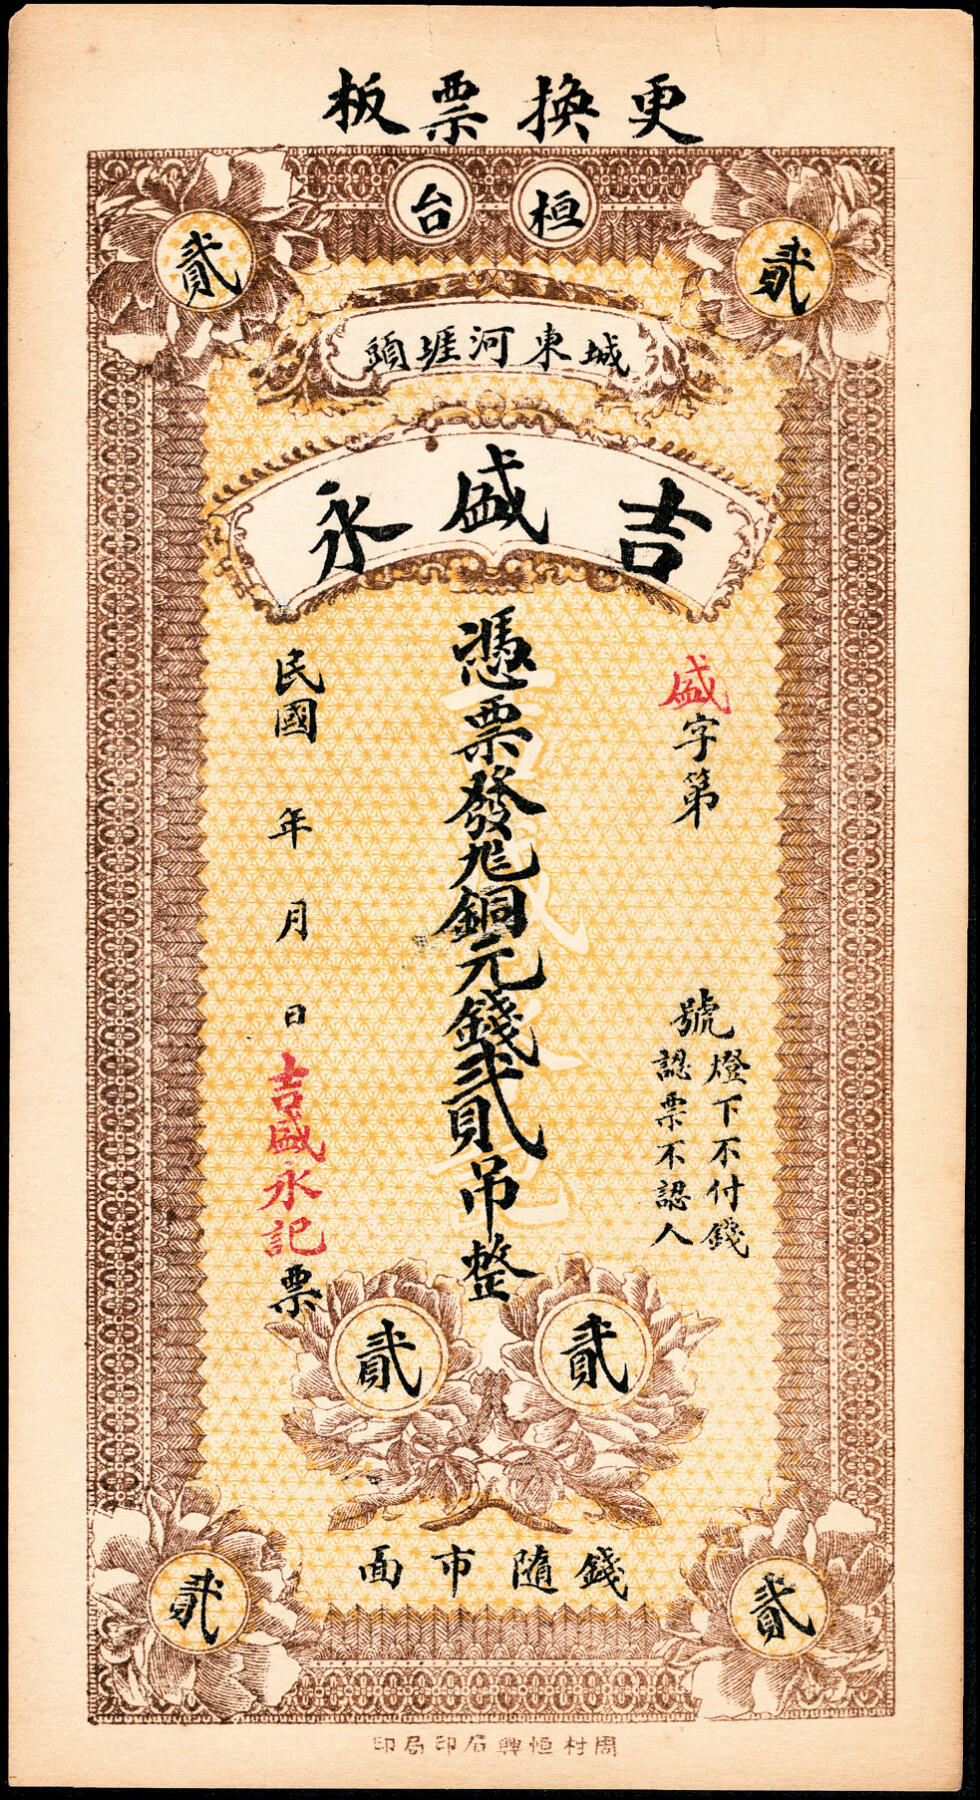 更換票板
桓台
貳
貳
城東河堐頭
吉盛永
盛字第
號
燈下不付錢
認票不認人
憑票發兌銅元錢貳吊整
民國 年 月 日吉盛永記票
貳
貳
錢隨市面
貳
貳
周村恒興石印局印